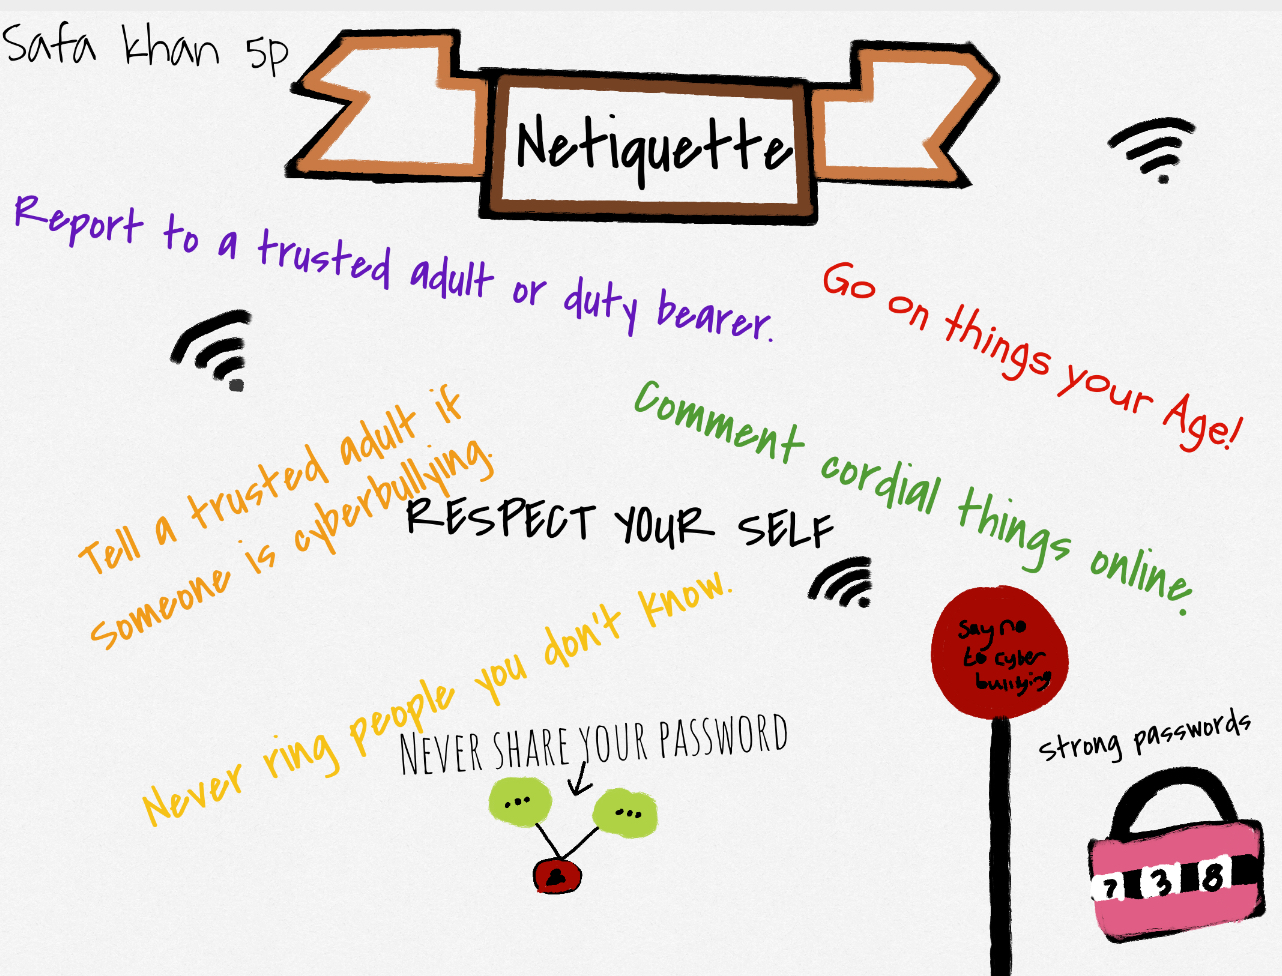 Safa khan 5p
Netiquette
Report to a trusted adult or duty bearer.
Go on things your Age!
Comment cordial things online.
Tell a trusted adult if
someone is cyberbullying.
RESPECT YOUR SELF
Never ring people you don't know.
Say no
to cyber
bullying
NEVER SHARE YOUR PASSWORD
strong passwords
7 3 8